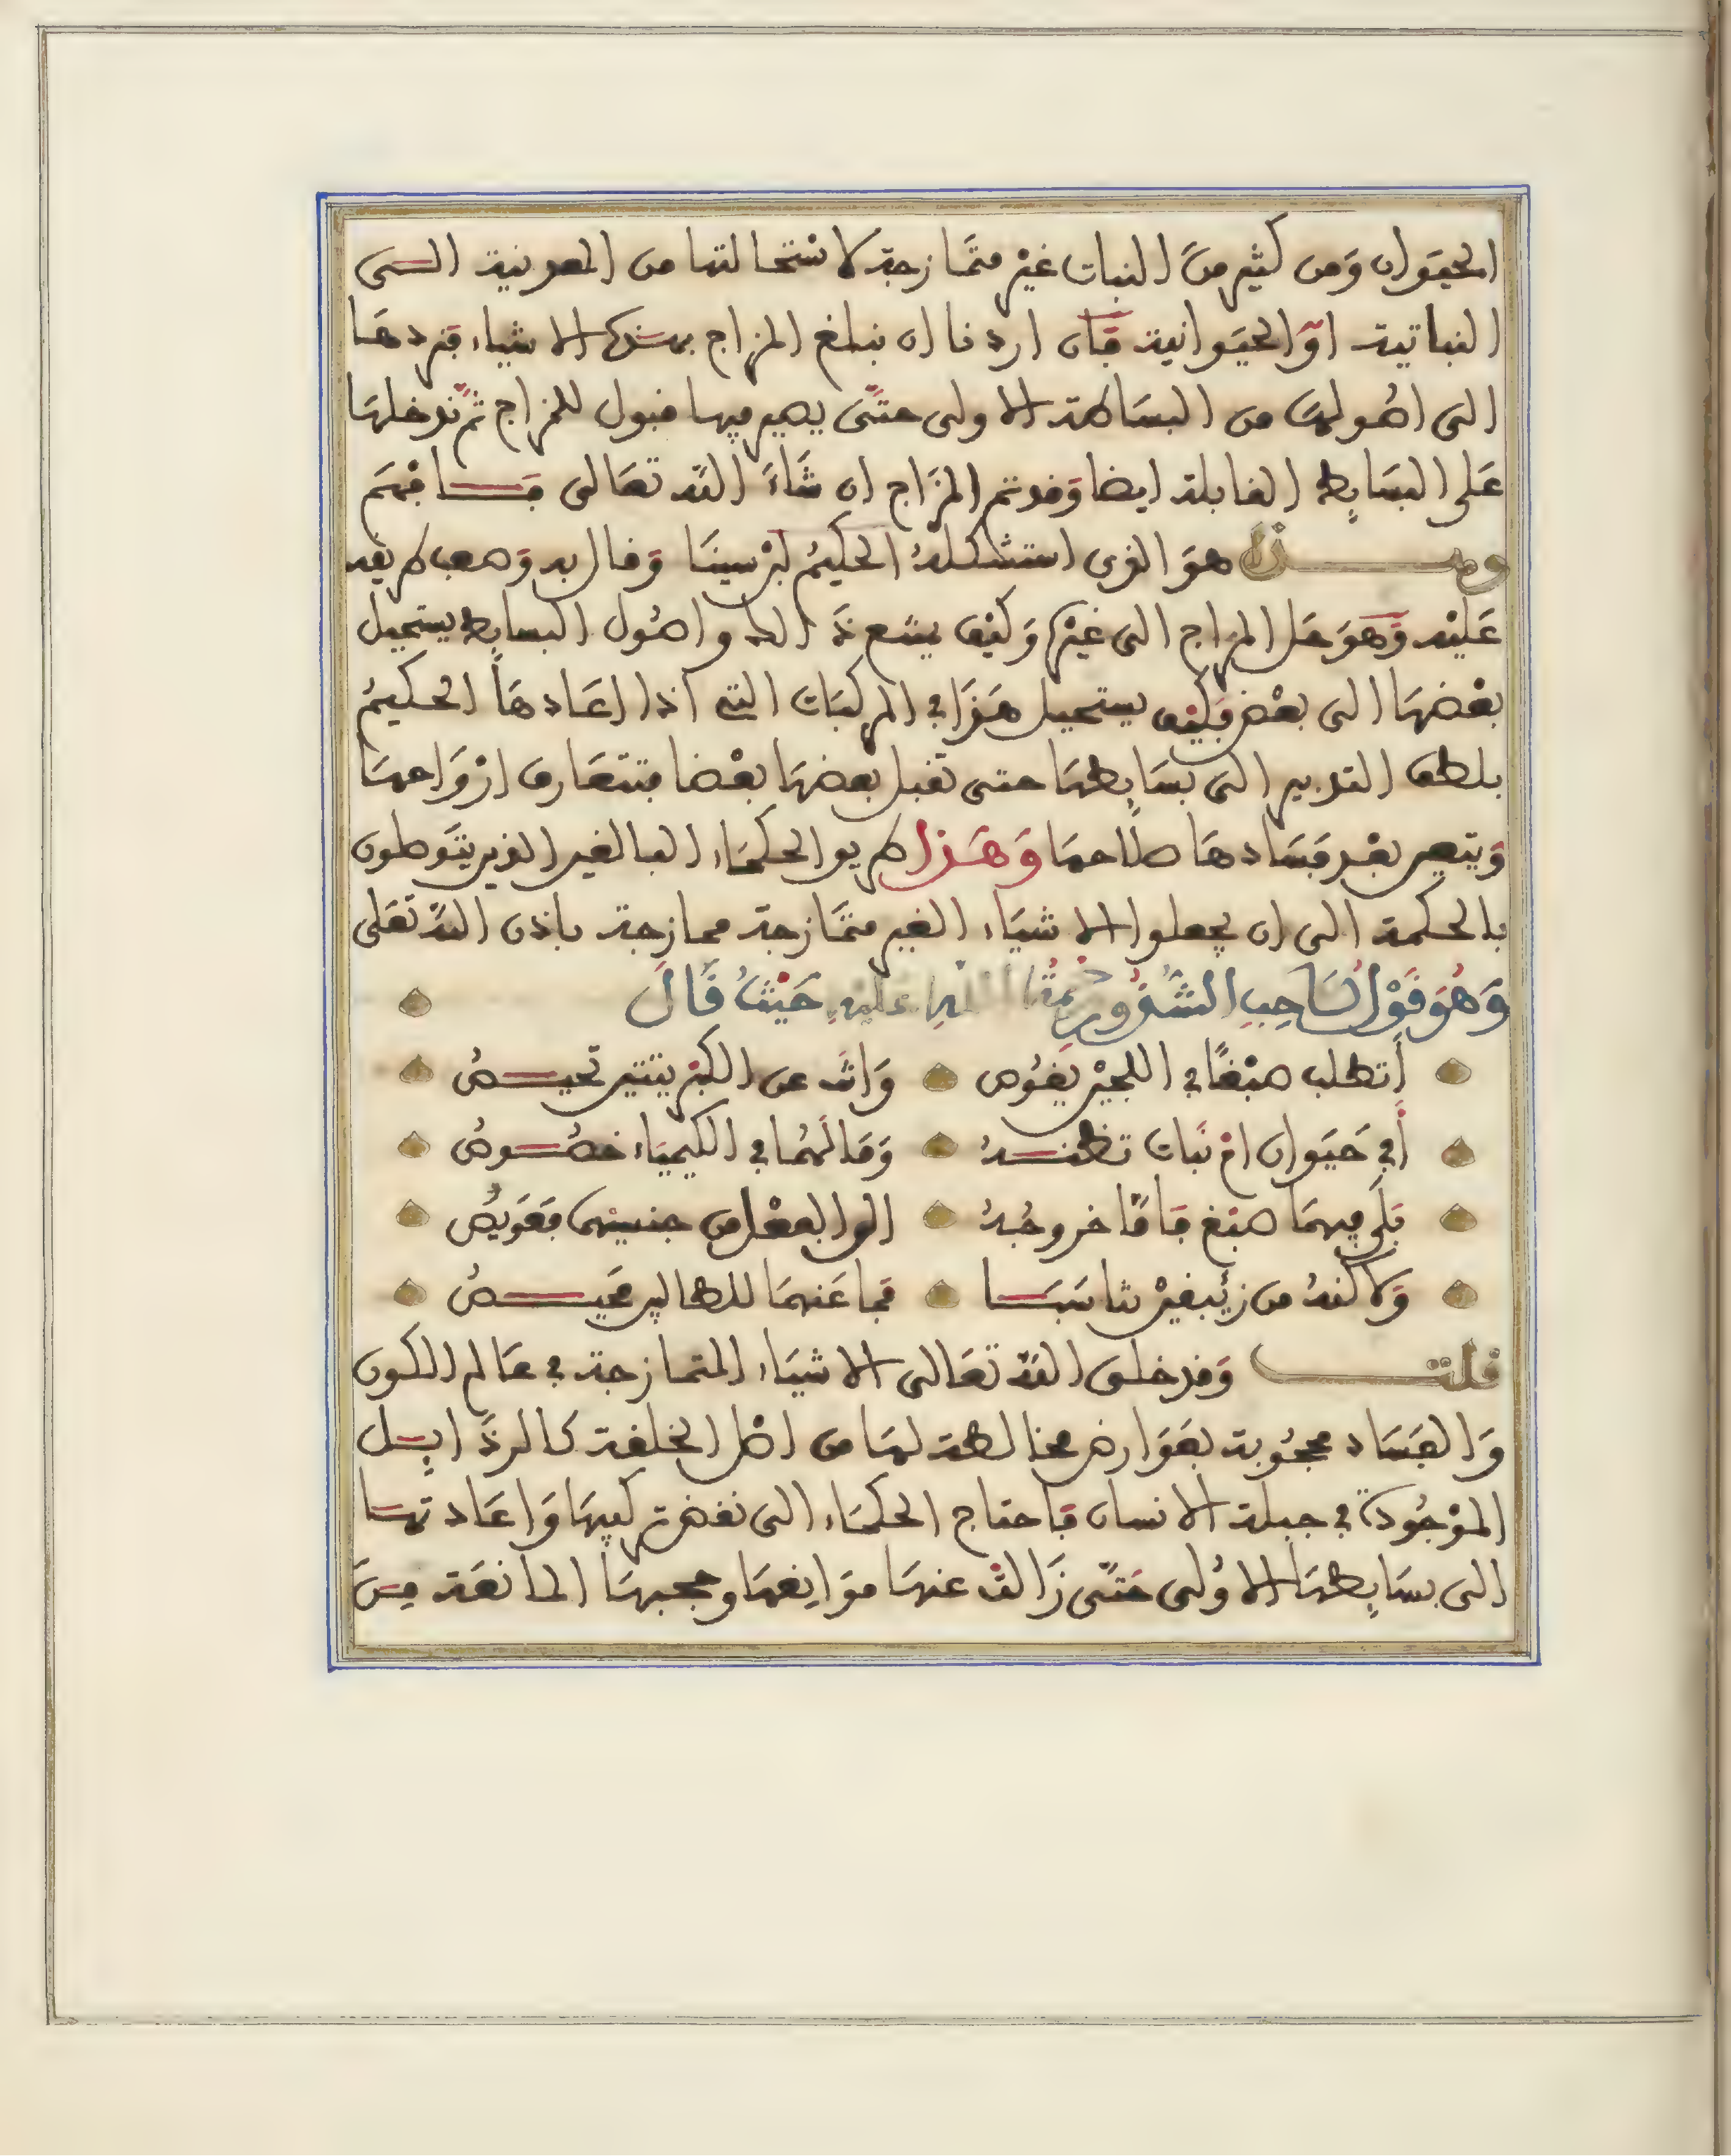 الحيوان ومن كثير من النبات غير متمازجة لاستحالتها من المعدنية الى
النباتية او الحيوانية فان اردنا ان نبلغ المزاج بهذه الاشياء فنردها
الى اصولها من البساطة الاولى حتى يصير فيها قبول للمزاج ثم ندخلها
على البسايط القابلة ايضا وقد تم المزاج ان شاء الله تعالى فافهم
وهذا هو الذي استشكله الحكيم ابن سينا وقال به وصعب طريقه
عليه وهو حل المزاج الى غيره وكيف يمتنع ذالك واصول البسايط يستحيل
بعضها الى بعض فكيف يستحيل هذا في المركبات التي اذا اعادها الحكيم
بلطف التدبير الى بسايطها حتى تقبل بعضها بعضا فتتعارف ازواحها
ويتصير بعد فسادها صلاحها وهذا طريق الحكماء البالغين الذين يتوصلون
بالحكمة الى ان يجعلوا الاشياء الغير متمازجة ممازجة باذن الله تعلى
وهو قول صاحب الشذور رحمة الله عليه حيث قال
أتطلب صبغا في اللجين يغوص وانت عن الكبريتتين تحيص
أفي حيوان ام نبات تظنه وما لهما في الكيمياء خصوص
بلى فيهما صبغ فاما خروجه الى الفعل من جنسيهما فعويص
ولاكنه من زئبقين تناسبا فما عنهما للطالبين محيص
قلت وقد خلق الله تعالى الاشياء المتمازجة في عالم الكون
والفساد محجوبة بعوارض مخالطة لها من اصل الخلقة كالرذايل
الموجودة في جبلة الانسان فاحتاج الحكماء الى نقض تركيبها واعادتها
الى بسايطها الاولى حتى زالت عنها موانعها وحجبها المانعة من